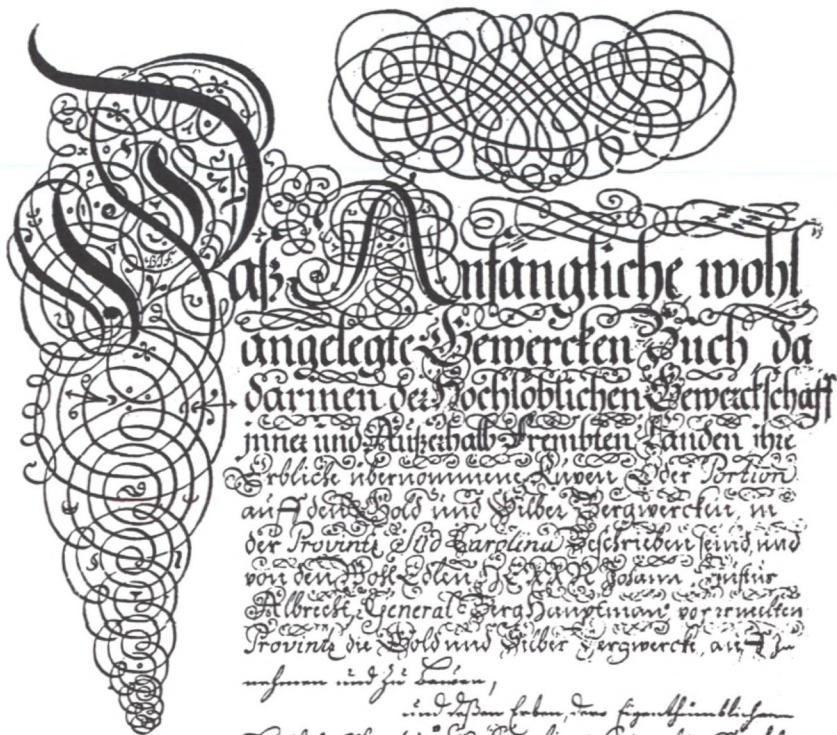 Daß Anfängliche wohl
angelegte Gewercken Buch da
darinen der Hochlöblichen Gewerckschafft
inner und Außerhalb Frembten Landen ihre
Erbliche übernommene Kuxen Oder Portion
auff den Gold und Silber Bergwercken, in
der Provintz Süd Carolina Beschrieben seind, und
von den Woll Edlen HERRN Johann
Albrecht, General Berg Hauptman vor ermelten
Provintz die Gold und Silber Bergwerck, auff zu
nehmen und zu bauen,
und deßen Erben, dero Eigenthumblichen